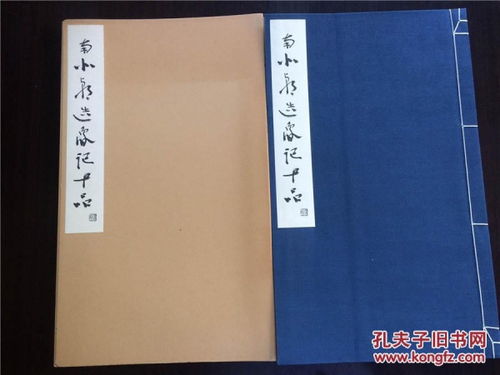 南北朝造像记十品
南北朝造像记十品
孔夫子旧书网
www.kongfz.com